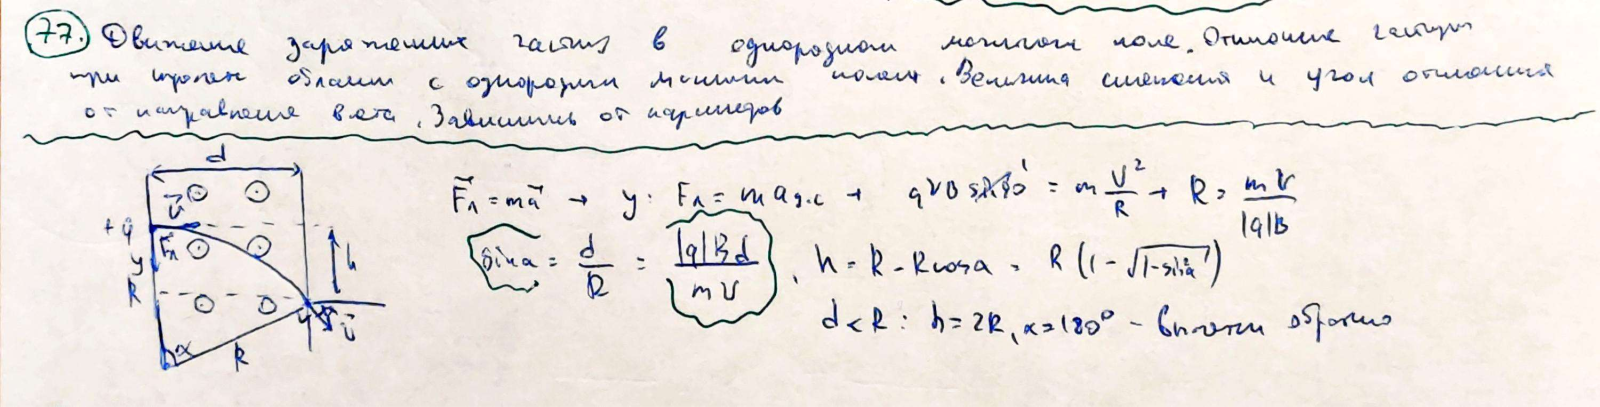 77. Движение заряженных частиц в однородном магнитном поле. Отклонение частицы
при пролёте области с однородным магнитным полем. Величина смещения и угол отклонения
от направления влёта. Зависимость от параметров
d
+q
v⃗
Fл
y
R
h
v⃗
α
R
F⃗л = ma⃗ → y: Fл = maц.с → qVB sin90 = m V²/R → R = mV/|q|B
sinα = d/R = |q|Bd/mV, h = R - Rcosα = R(1 - √(1-sin²α))
d < R: h = 2R, α = 180° - вылетит обратно